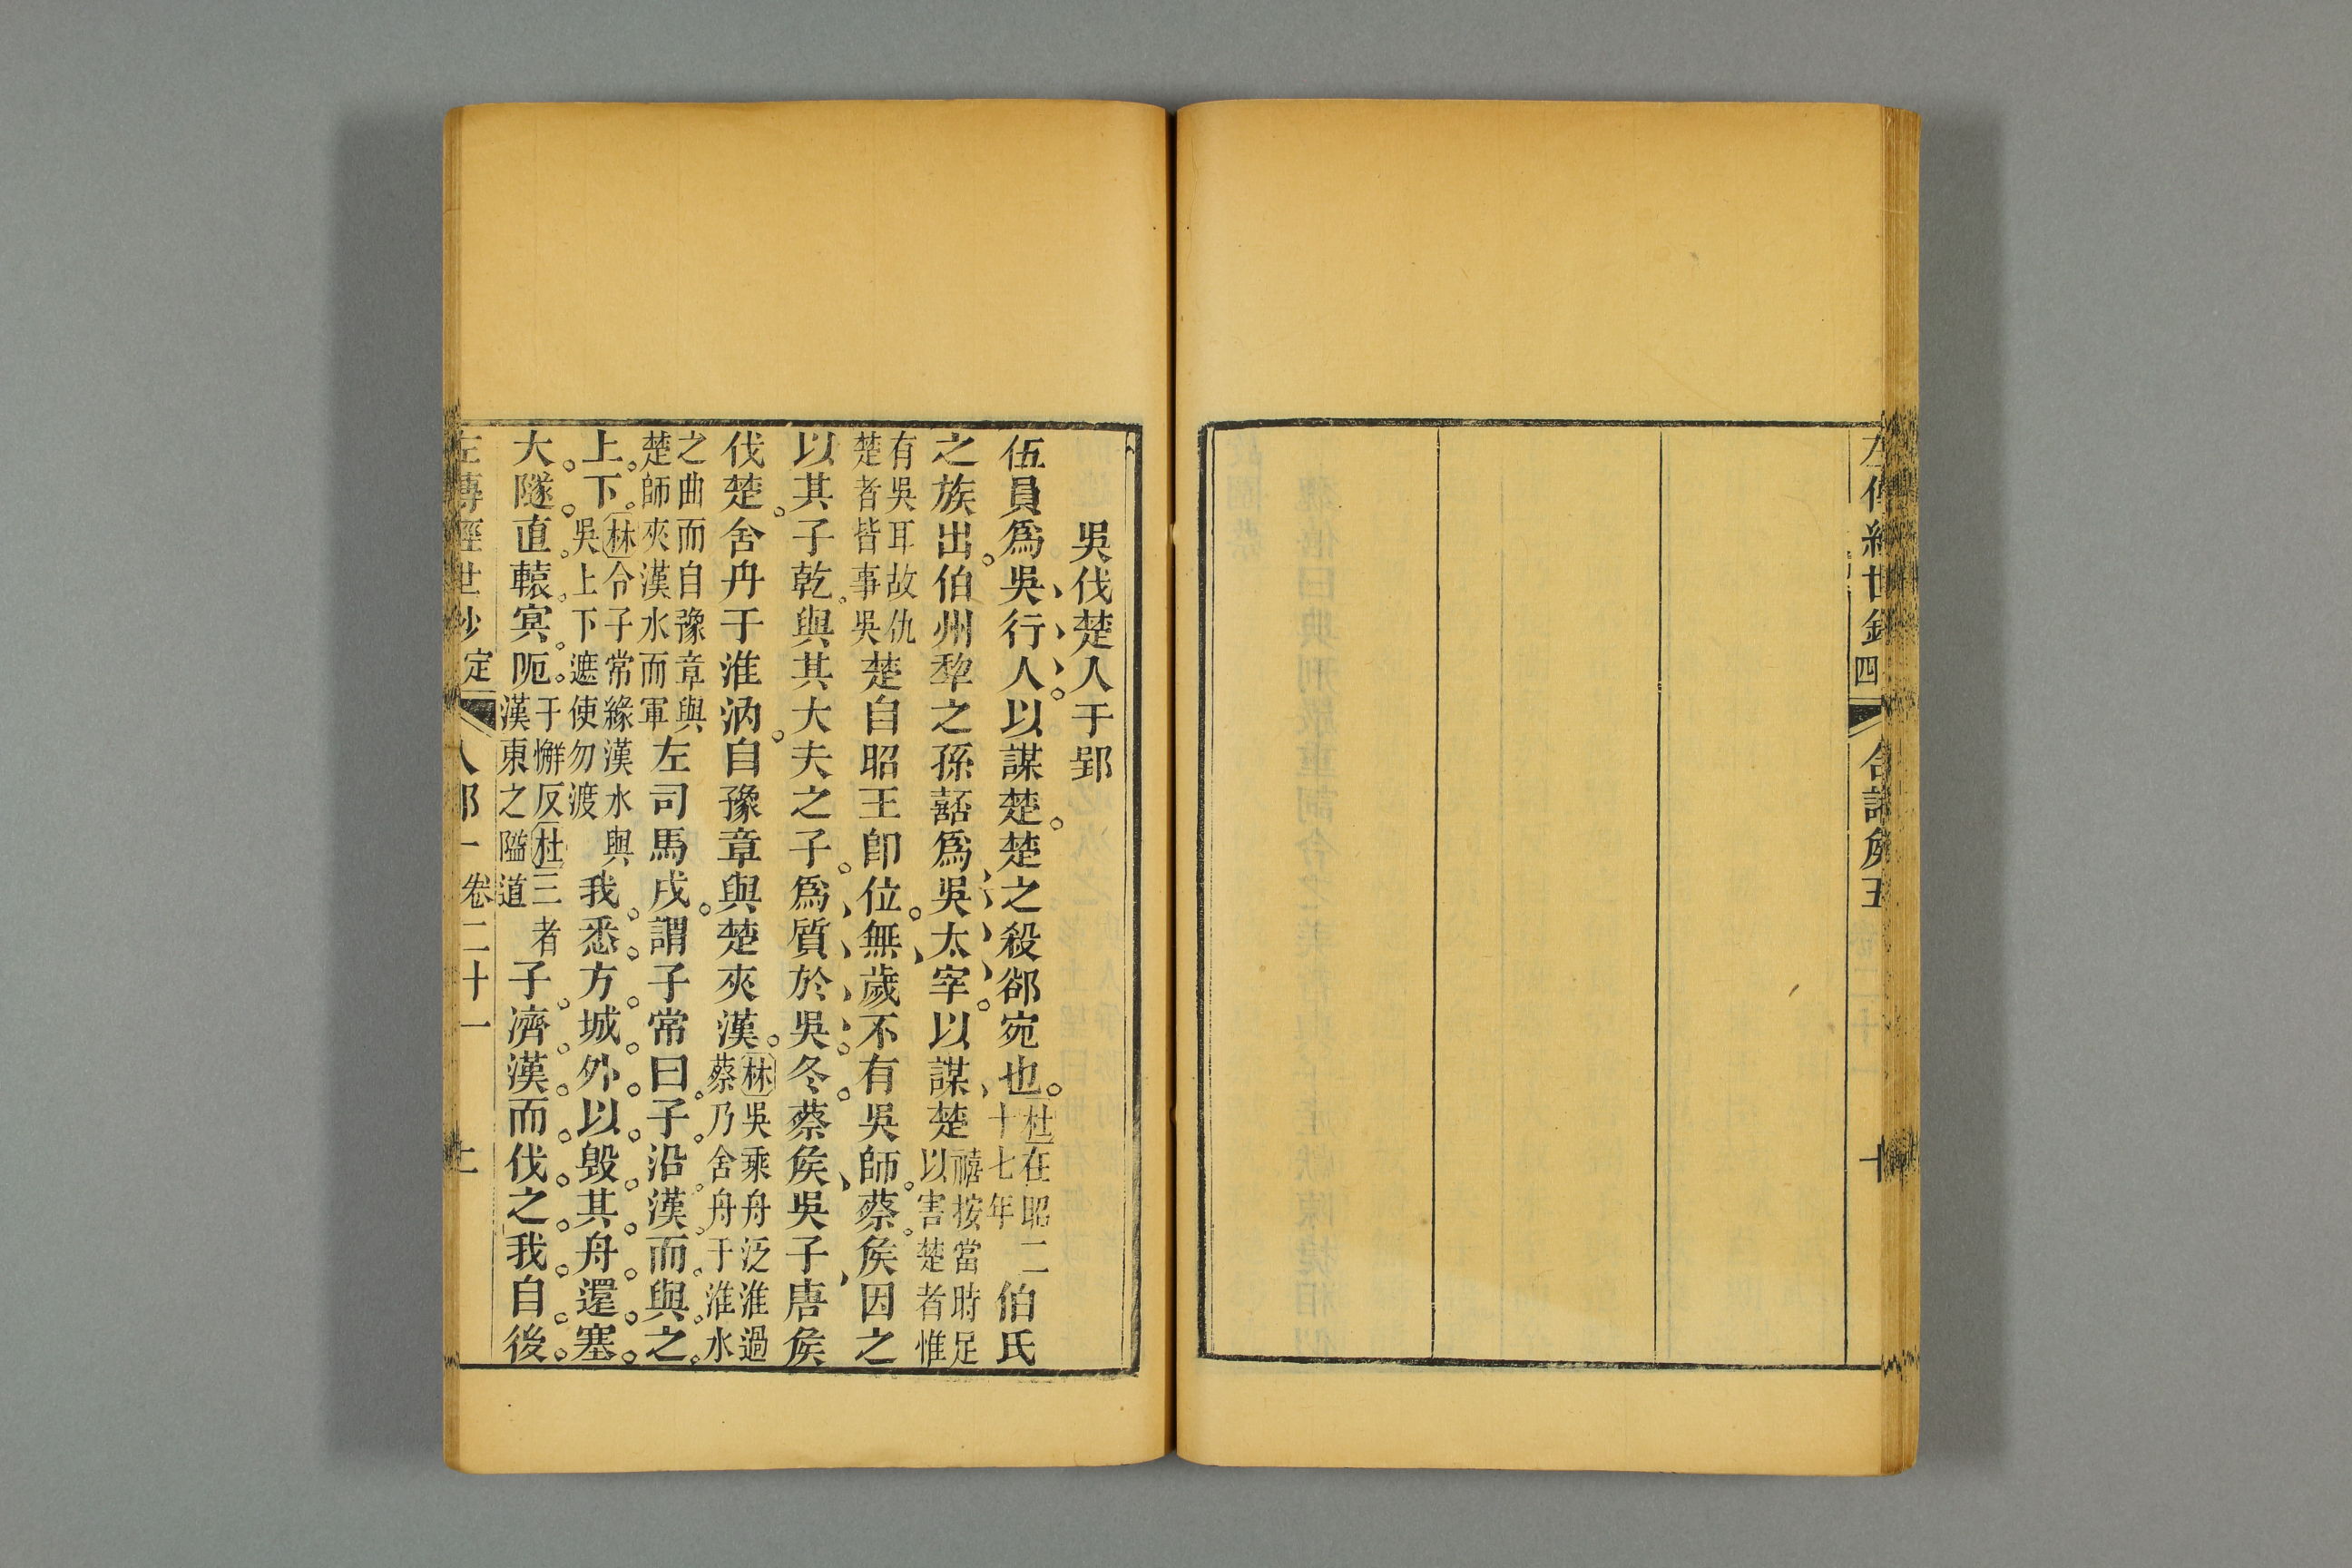 左傳經世鈔 四 合諸矦 五 十
吳伐楚人于郢
伍員爲吳行人以謀楚楚之殺郤宛也 杜在昭二十七年 伯氏
之族出伯州犂之孫嚭爲吳太宰以謀楚 禧按當時足以害楚者惟
有吳耳故仇楚者皆事吳 楚自昭王卽位無歲不有吳師蔡矦因之
以其子乾與其大夫之子爲質於吳冬蔡矦吳子唐矦
伐楚舍舟于淮汭自豫章與楚夾漢 林吳乘舟泛淮過蔡乃舍舟于淮水
之曲而自豫章與楚師夾漢水而軍 左司馬戌謂子常曰子沿漢而與之
上下 林令子常緣漢水與吳上下遮使勿渡 我悉方城外以毁其舟還塞
大隧直轅冥阨 于懈反杜三者漢東之隘道 子濟漢而伐之我自後
左傳經世鈔 定 入郢一 卷二十一